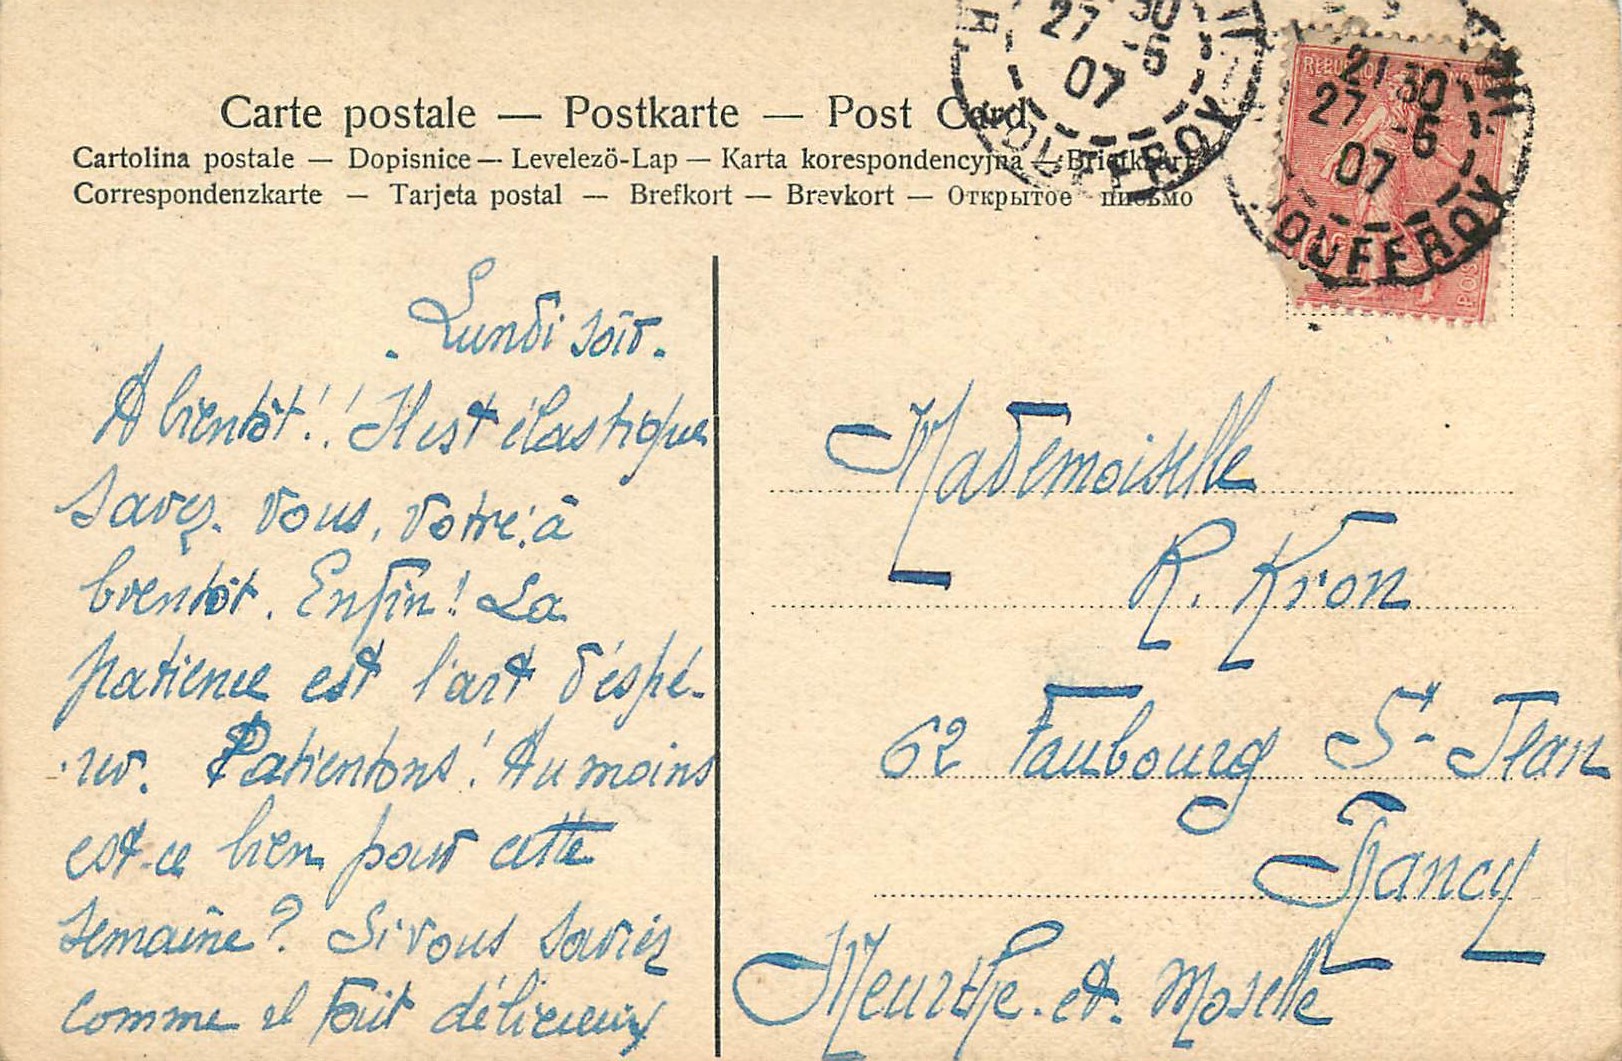 Carte postale — Postkarte — Post Card
Cartolina postale — Dopisnice — Levelezö-Lap — Karta korespondencyjna — Briefkaart
Correspondenzkarte — Tarjeta postal — Brefkort — Brevkort — Открытое письмо
27 -5
07
JOUFFROY
21 30
27 -5
07
JOUFFROY
Lundi soir.
A bientôt!! Il est élastique
savez-vous, votre: à
bientôt. Enfin! La
patience est l'art d'espé-
rer. Patientons! Au moins
est-ce bien pour cette
semaine? Si vous saviez
comme il fait délicieux
Mademoiselle
R. Kron
62 Faubourg St Jean
Nancy
Meurthe-et-Moselle